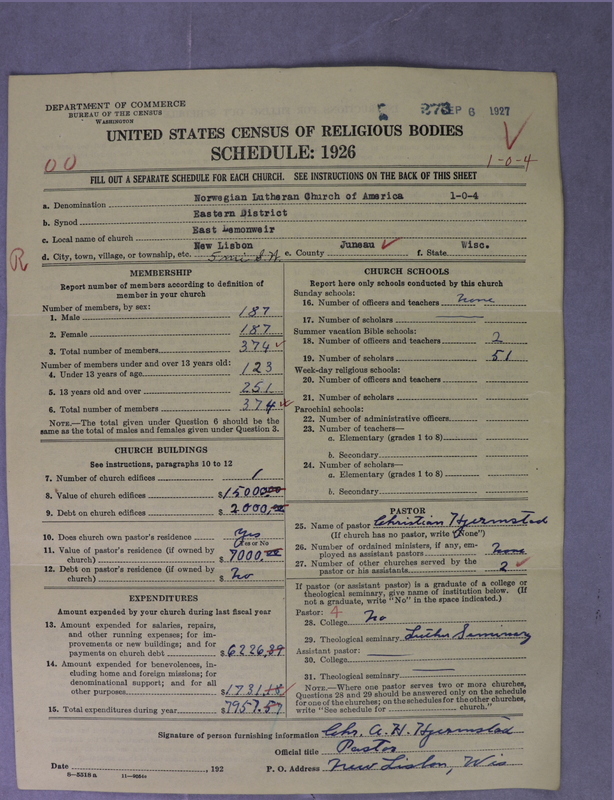 DEPARTMENT OF COMMERCE
BUREAU OF THE CENSUS
WASHINGTON
273 SEP 6 1927
UNITED STATES CENSUS OF RELIGIOUS BODIES
SCHEDULE: 1926
00
1-0-4
FILL OUT A SEPARATE SCHEDULE FOR EACH CHURCH. SEE INSTRUCTIONS ON THE BACK OF THIS SHEET
a. Denomination Norwegian Lutheran Church of America 1-0-4
b. Synod Eastern District
c. Local name of church East Lemonweir
d. City, town, village, or township, etc. New Lisbon 5 mi S.W. e. County Juneau f. State Wisc.
R
MEMBERSHIP
Report number of members according to definition of
member in your church
Number of members, by sex:
1. Male 187
2. Female 187
3. Total number of members 374
Number of members under and over 13 years old:
4. Under 13 years of age 123
5. 13 years old and over 251
6. Total number of members 374
NOTE.—The total given under Question 6 should be the
same as the total of males and females given under Question 3.
CHURCH BUILDINGS
See instructions, paragraphs 10 to 12
7. Number of church edifices 1
8. Value of church edifices $15000.00
9. Debt on church edifices $2000.00
10. Does church own pastor's residence? Yes
Yes or No
11. Value of pastor's residence (if owned by
church) $7000.00
12. Debt on pastor's residence (if owned by
church) $ No
EXPENDITURES
Amount expended by your church during last fiscal year
13. Amount expended for salaries, repairs,
and other running expenses; for im-
provements or new buildings; and for
payments on church debt $6226.39
14. Amount expended for benevolences, in-
cluding home and foreign missions; for
denominational support; and for all
other purposes $1731.18
15. Total expenditures during year $7957.57
CHURCH SCHOOLS
Report here only schools conducted by this church
Sunday schools:
16. Number of officers and teachers none
17. Number of scholars
Summer vacation Bible schools:
18. Number of officers and teachers 2
19. Number of scholars 51
Week-day religious schools:
20. Number of officers and teachers
21. Number of scholars
Parochial schools:
22. Number of administrative officers
23. Number of teachers—
a. Elementary (grades 1 to 8)
b. Secondary
24. Number of scholars—
a. Elementary (grades 1 to 8)
b. Secondary
PASTOR
25. Name of pastor Christian Hjermstad
(If church has no pastor, write "None")
26. Number of ordained ministers, if any, em-
ployed as assistant pastors none
27. Number of other churches served by the
pastor or his assistants 2
If pastor (or assistant pastor) is a graduate of a college or
theological seminary, give name of institution below. (If
not a graduate, write "No" in the space indicated.)
Pastor: 4
28. College No
29. Theological seminary Luther Seminary
Assistant pastor:
30. College
31. Theological seminary
NOTE.—Where one pastor serves two or more churches,
Questions 28 and 29 should be answered only on the schedule
for one of the churches; on the schedules for the other churches,
write "See schedule for church."
Signature of person furnishing information Chr. A. H. Hjermstad
Official title Pastor
Date , 192 P. O. Address New Lisbon, Wis
8-5518 a